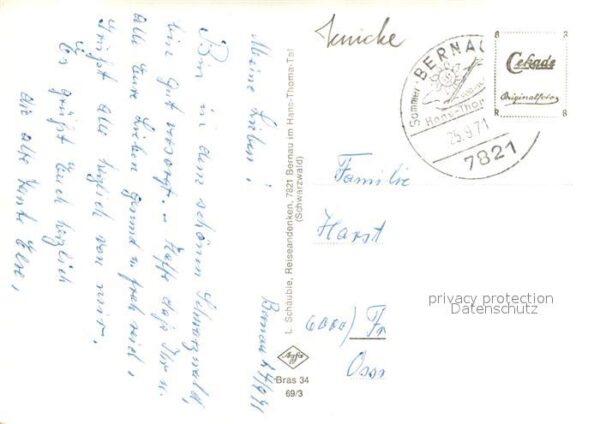 Jenicke
Bernau 24/9 71
Meine Lieben!
Bin in dem schönen Schwarzwald,
bin gut versorgt. Hoffe daß Ihr u.
alle Eure Lieben gesund u. froh seid,
Grüßt alle herzlich von mir,
Es grüßt Euch herzlich
die alte Tante Else,
L. Schäuble, Reiseandenken, 7821 Bernau im Hans-Thoma-Tal
(Schwarzwald)
Agfa
Bras 34
69/3
Sommer BERNAU
Hans-Thom
25.9.71
7821
8 8
Cekade
Originalfoto
R 8
Familie
Harst
6000/ Fr
Oss
privacy protection
Datenschutz